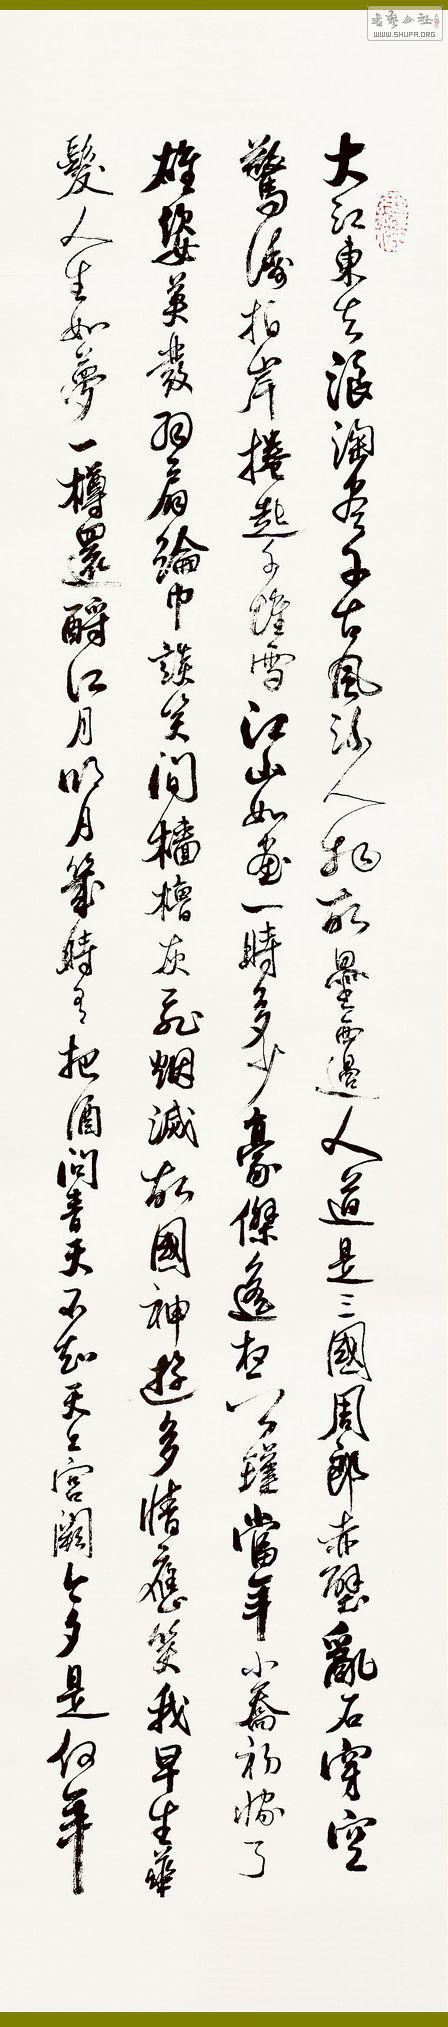 书艺公社
WWW.SHUFA.ORG
大江東去浪淘盡千古風流人物故壘西邊人道是三國周郎赤壁亂石穿空
驚濤拍岸捲起千堆雪江山如畫一時多少豪傑遙想公瑾當年小喬初嫁了
雄姿英發羽扇綸巾談笑間檣櫓灰飛烟滅故國神遊多情應笑我早生華
髮人生如夢一樽還酹江月明月幾時有把酒問青天不知天上宮闕今夕是何年